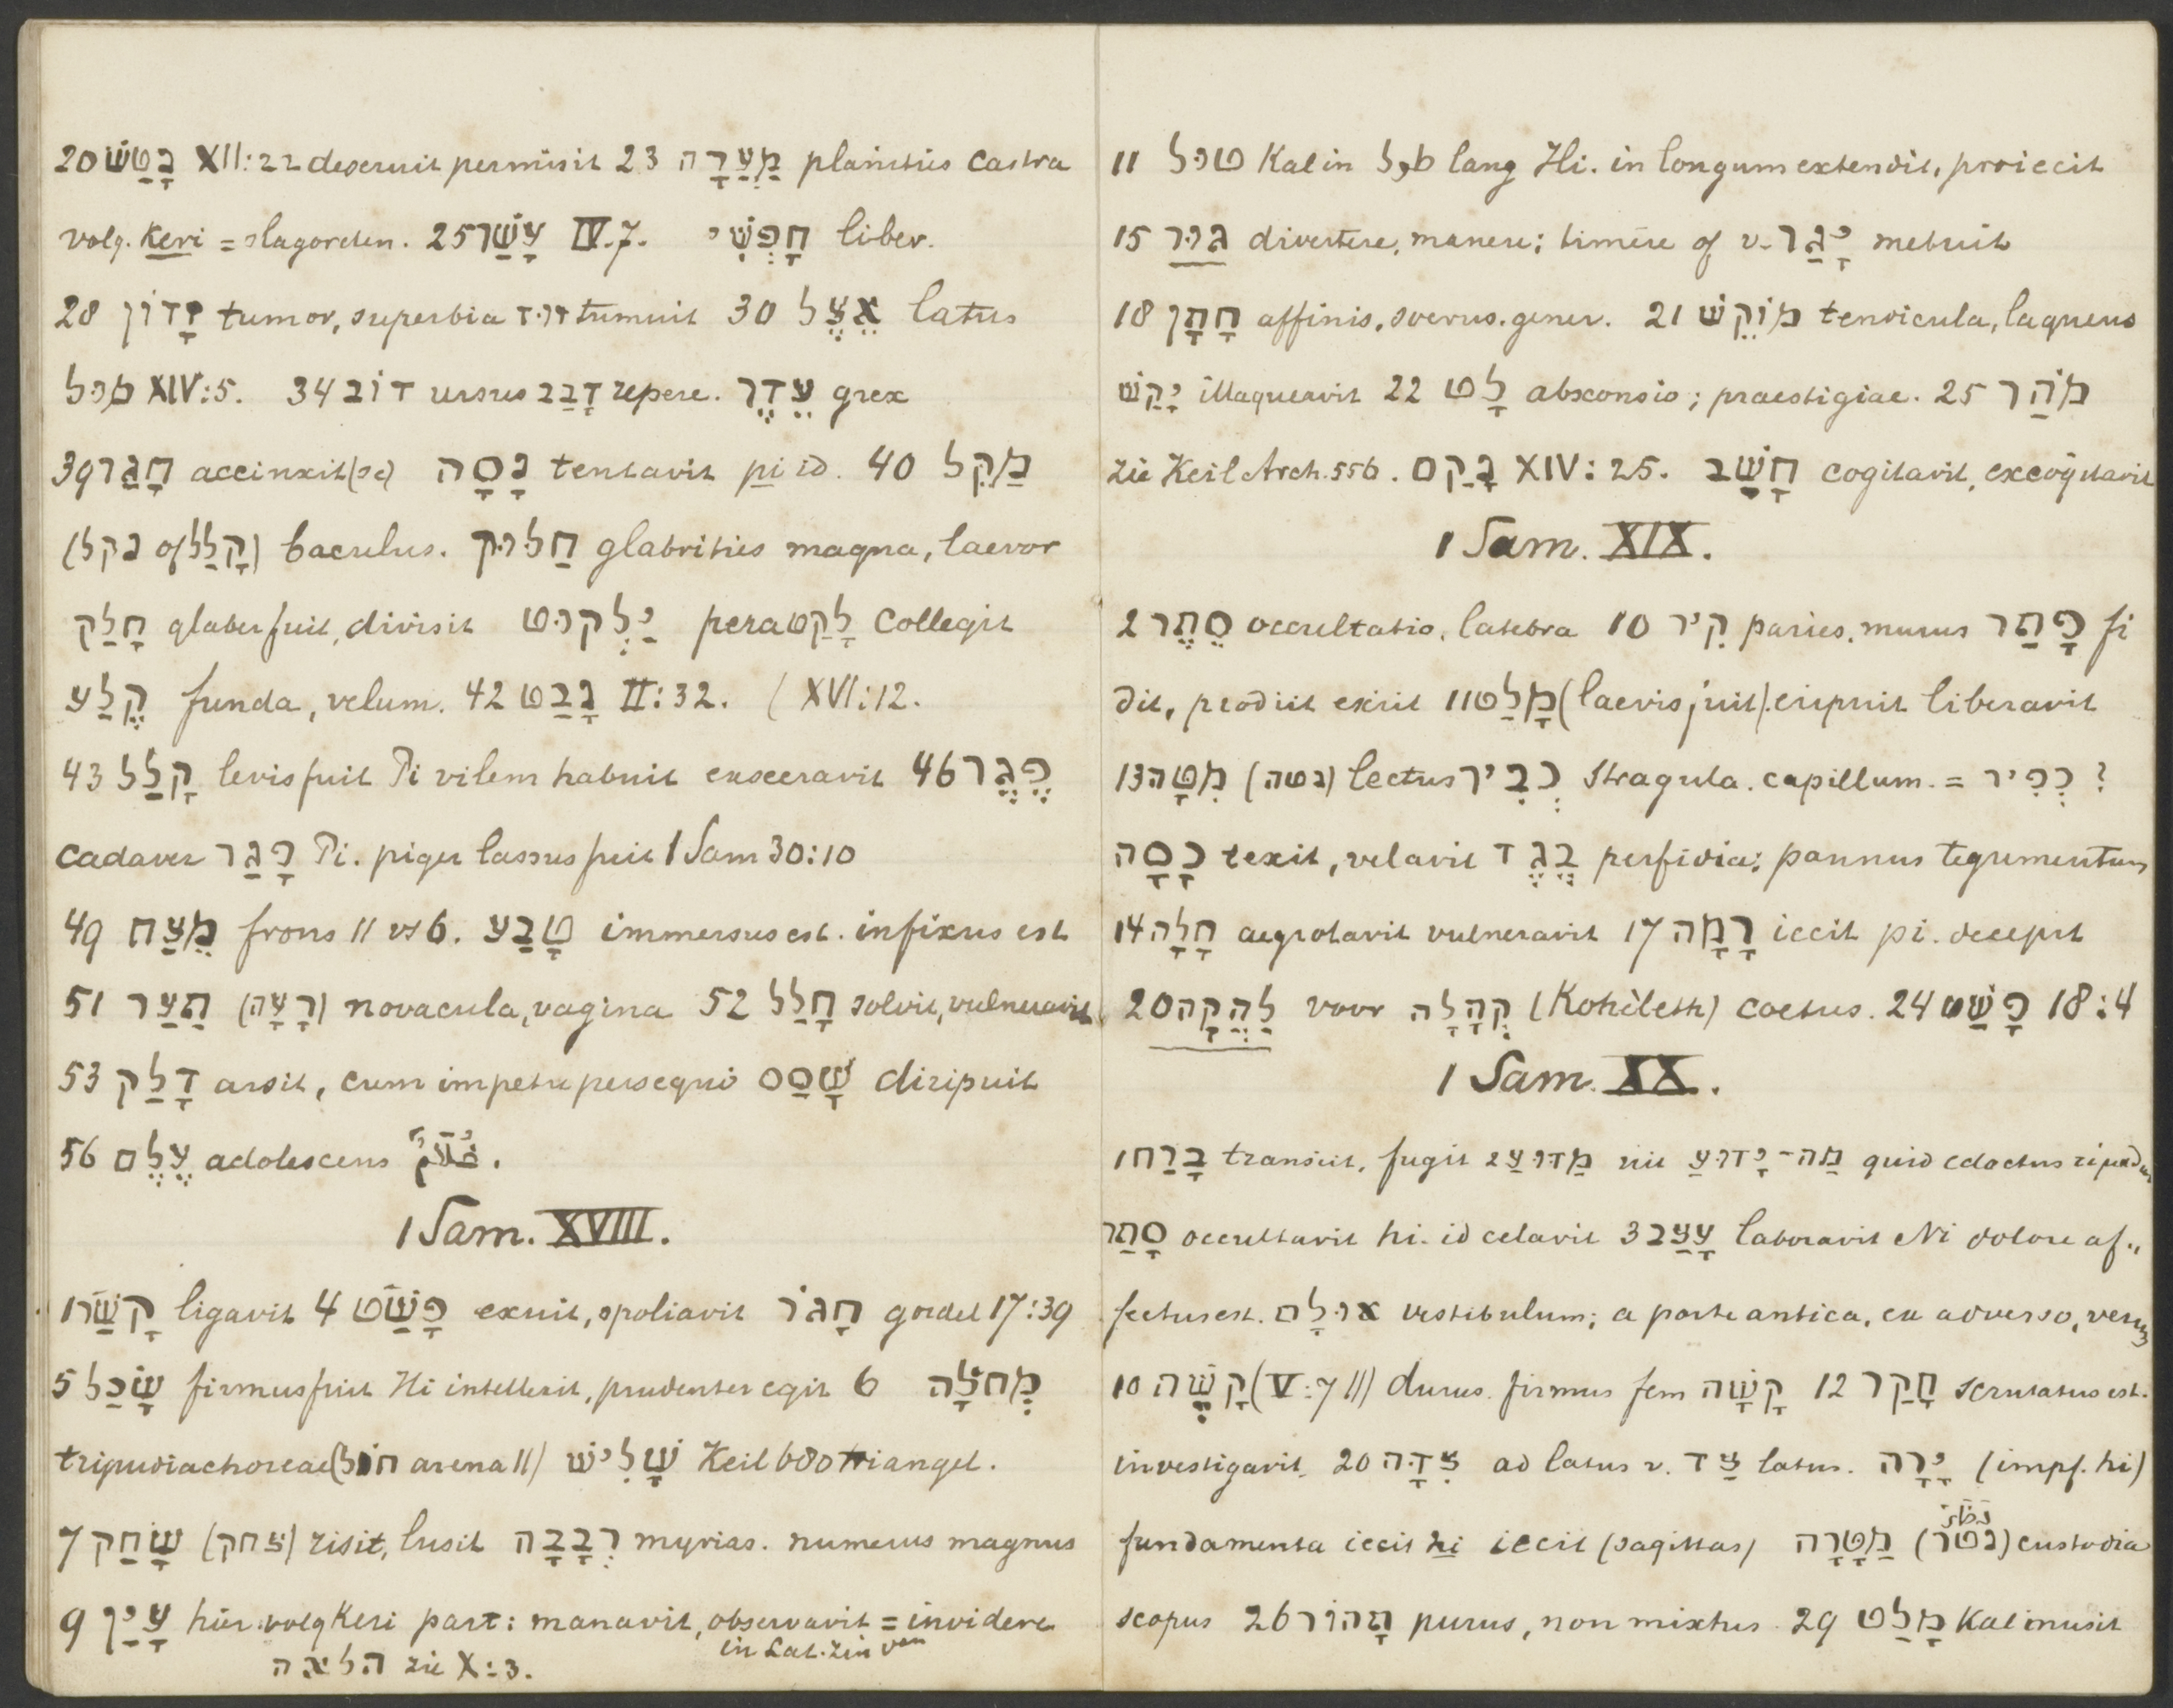 20 נָטַשׁ XII:22 deseruit permisit 23 מַעֲרָה planities castra
volg. Keri = slagorden. 25 עָשַׁר IV.7. חָפְשִׁי liber.
28 זָדוֹן tumor, superbia זוּד tumuit 30 אֵצֶל latus
מוּל XIV:5. 34 דּוֹב ursus דָבַב repere. עֵדֶר grex
39 חָגַר accinxit (se) נָסָה tentavit pi id. 40 מַקֵל
(נקל of קָלַל) baculus. חַלּוּק glabrities magna, laevor
חָלַק glaber fuit, divisit יַלְקוּט pera לָקַט collegit
קֶלַע funda, velum. 42 נָבַט II:32. ( XVI:12.
43 קָלַל levis fuit Pi vilem habuit exsecravit 46 פֶּגֶר
cadaver פָּגַר Pi. piger lassus fuit 1 Sam 30:10
49 מֵצַח frons 11 vs 6. טָבַע immersus est. infixus est
51 תַעַר (רָצָה) novacula, vagina 52 חָלַל solvit, vulneravit
53 דָלַק arsit, cum impetu persequi שָׁסַס diripuit
56 עֶלֶם adolescens غُلَامٌ.
1 Sam. XVIII.
1 קָשַׁר ligavit 4 פָּשַׁט exuit, spoliavit חָגוֹר gordel 17:39
5 שָׂכַל firmus fuit Hi intellexit, prudenter egit 6 מְחֹלָה
tripudia choreae (חוֹל arena 11) שָׁלִישׁ Keil 680 triangel.
7 שָׂחַק (צחק) risit, lusit רְבָבָה myrias. numerus magnus
9 עָיַן hier volg Keri part: manavit, observavit = invidere
in Lat. zin van
הלאה zie X:3.
11 טוּל Kal in طول lang Hi. in longum extendit, proiecit
15 גּוּר divertere, manere; timere of v. יָגַר metuit
18 חָתָן affinis, socrus. gener. 21 מוֹקֵשׁ tendicula, laqueus
יָקַשׁ illaqueavit 22 לָט absconsio; praestigiae. 25 מֹהַר
zie Keil Arch. 556. נָקַם XIV:25. חָשַׁב cogitavit, excogitavit
1 Sam. XIX.
2 סֵתֶר occultatio, latebra 10 קִיר paries, murus פָּטַר fi
dit, prodiit exiit 11 מָלַט (laevis fuit). eripuit liberavit
13 מִטָּה (נטה) lectus כְּבִיר stragula. capillum. = כְּפִיר ?
כָּסָה texit, velavit בֶּגֶד perfidia; pannus tegumentum
14 חָלָה aegrotavit vulneravit 17 רָמָה iecit pi. decepit
20 לַהֲקָה voor קְהָלָה (Kohèleth) coetus. 24 פָּשַׁט 18:4
1 Sam. XX.
1 בָּרַח transiit, fugit 2 מַדּוּעַ uit מַה־יָּדוּעַ quid edoctus
סָתַר occultavit hi. id celavit 3 עָצַב laboravit Ni dolore af„
fectus est. אוּלָם vestibulum; a parte antica, ex adverso, verum
10 קָשֶׁה (V:7 11) durus. firmus fem קָשָׁה 12 חָקַר scrutatus est.
investigavit. 20 צִדָּה ad latus v. צַד latus. יָרָה (impf. hi)
fundamenta iecit hi iecit (sagittas) מַטָּרָה (נטר نظر) custodia
scopus 26 טָהוֹר purus, non mixtus 29 מָלַט Kal inusit